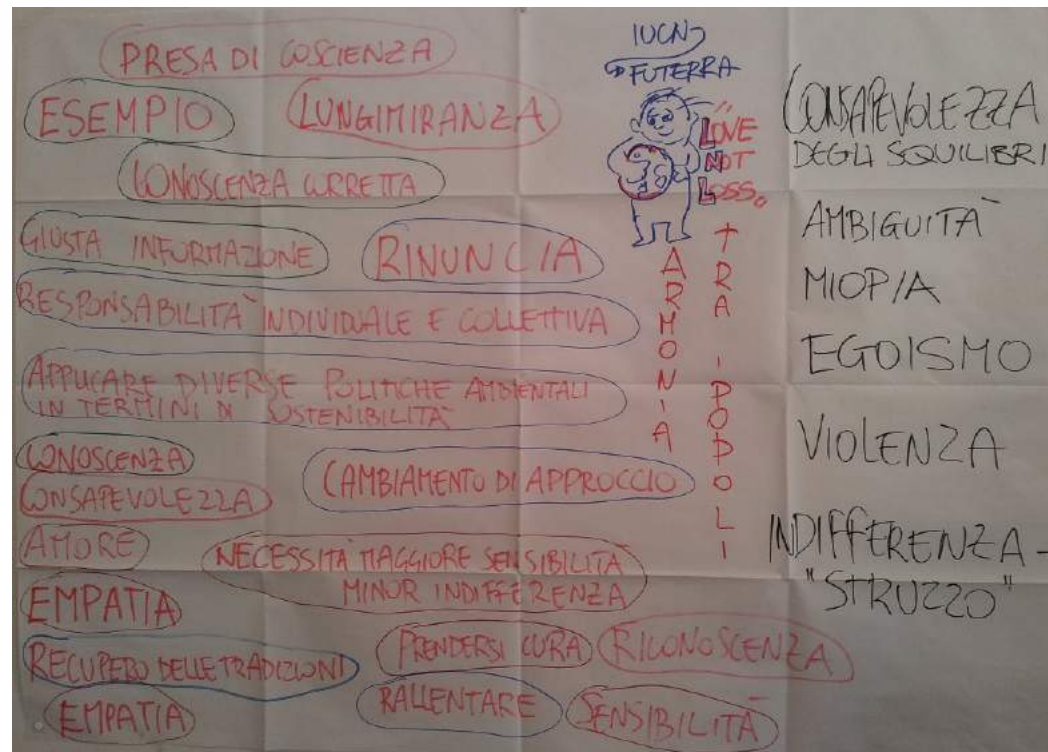 PRESA DI COSCIENZA
ESEMPIO
LUNGIMIRANZA
CONOSCENZA CORRETTA
GIUSTA INFORMAZIONE
RINUNCIA
RESPONSABILITÀ INDIVIDUALE E COLLETTIVA
APPLICARE DIVERSE POLITICHE AMBIENTALI
IN TERMINI DI SOSTENIBILITÀ
CONOSCENZA
CAMBIAMENTO DI APPROCCIO
CONSAPEVOLEZZA
AMORE
NECESSITÀ MAGGIORE SENSIBILITÀ
MINOR INDIFFERENZA
EMPATIA
RECUPERO DELLE TRADIZIONI
PRENDERSI CURA
RICONOSCENZA
EMPATIA
RALLENTARE
SENSIBILITÀ
IUCN
FUTERRA
"LOVE
NOT
LOSS"
ARMONIA
TRA I POPOLI
CONSAPEVOLEZZA
DEGLI SQUILIBRI
AMBIGUITÀ
MIOPIA
EGOISMO
VIOLENZA
INDIFFERENZA -
"STRUZZO"